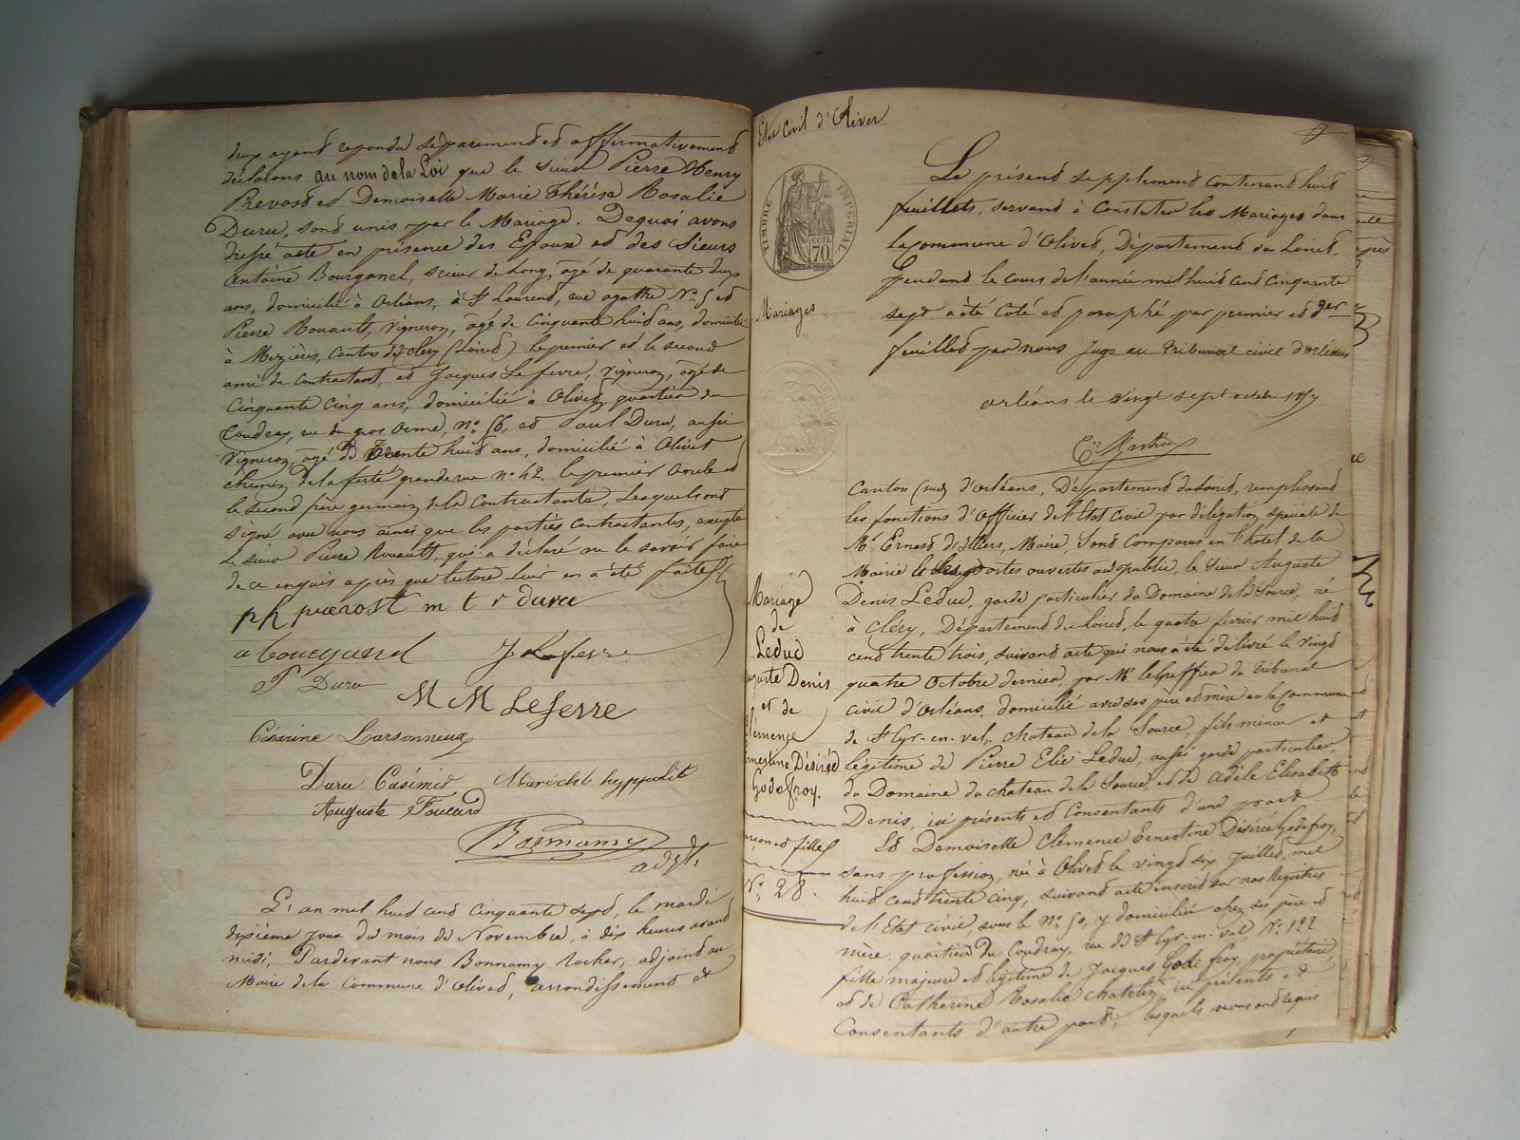 deux ayant repondu séparement et affirmativement
déclarons au nom de la Loi que le Sieur Pierre Henry
Prevost et Demoiselle Marie Thérèse Rosalie
Duru, sont unis par le Mariage. Dequoi avons
dressé acte en présence des Epoux et des Sieurs
Antoine Bourgand, scieur de long, agé de quarante deux
ans, domicilié à Orléans, à St Laurent, rue agathe No 5 et
Pierre Rouault, Vigneron, agé de Cinquante huit ans, domicilié
à Mezières, Canton de Clery (Loiret) le premier et le second
ami du Contractant, et Jacques Lefevre, Vigneron, agé de
Cinquante Cinq ans, domicilié à Olivet, quartier du
Coudray, rue du gros orme, No 56, et Paul Duru, aussi
Vigneron, agé de Trente huit ans, domicilié à Olivet
chemin de la ferté grande rue No 42. le premier oncle et
le second frère germain de la Contractante, Lesquels ont
signé avec nous ainsi que les parties Contractantes, excepté
Le sieur Pierre Rouault, qui a déclaré ne le savoir faire
de ce enquis après que lecture leur en a été faite
ph prevost m t r duru
a bourgand J Lefevre
P Duru M M Lefevre
Césarine Larsonneux
Duru Casimir Maréchal hyppolite
Auguste Foucard
Bonnamy
adjt
L'an mil huit cent Cinquante sept, le mardi
dixième jour du mois de Novembre, à dix heures avant
midi, Pardevant nous Bonnamy Rocher, adjoint au
Maire de la Commune d'Olivet, arrondissement et
Etat Civil d'Olivet
TIMBRE IMPERIAL
70
Le présent supplement Contenant huit
feuillets, servant à Constater les Mariages dans
la commune d'Olivet, Département du Loiret,
Pendant le cours de l'année mil huit cent cinquante
sept a été Coté et paraphé par premier et der
feuillet par nous Juge au Tribunal civil d'orléans
Mariages
orléans le Vingt sept octobre 1857
Canton (sud) d'Orléans, Département du Loiret, remplissant
les fonctions d'Officier de l'Etat Civil par délégation speciale de
Mr Ernest d'Illiers, Maire, Sont Comparus en l'hôtel de la
Mairie les portes ouvertes au public, le Sieur Auguste
Denis Leduc, garde particulier du Domaine de la Source, né
à Cléry, Département du Loiret, le quatre fevrier mil huit
cent trente trois, suivant acte qui nous a été délivré le Vingt
quatre Octobre dernier, par Mr le Greffier du Tribunal
civil d'Orléans, domicilié avec ses père et mère en la Commune
de St Cyr-en-val, chateau de la Source, fils mineur et
legitime de Pierre Elie Leduc, aussi garde particulier
du Domaine du chateau de la Source et de Adèle Elisabeth
Denis, ici présents et Consentants d'une part
Et Demoiselle Clémence Ernestine Désirée Godeffroy,
sans profession, née à Olivet le vingt six Juillet, mil
huit cent trente cinq, suivant acte inscrit sur nos Registres
de l'Etat Civil, sous le No 50, y domiciliée chez ses père et
mère quartier du Coudray, rue de St Cyr-en-val, No 122
fille majeure et légitime de Jacques Godeffroy, propriétaire
et de Catherine Rosalie chatelin, ici présents et
Consentants d'autre part; lesquels nous ont requis
Mariage
de
Leduc
Auguste Denis
et de
Clémence
Ernestine Désirée
Godeffroy.
garçon et fille
No 28.